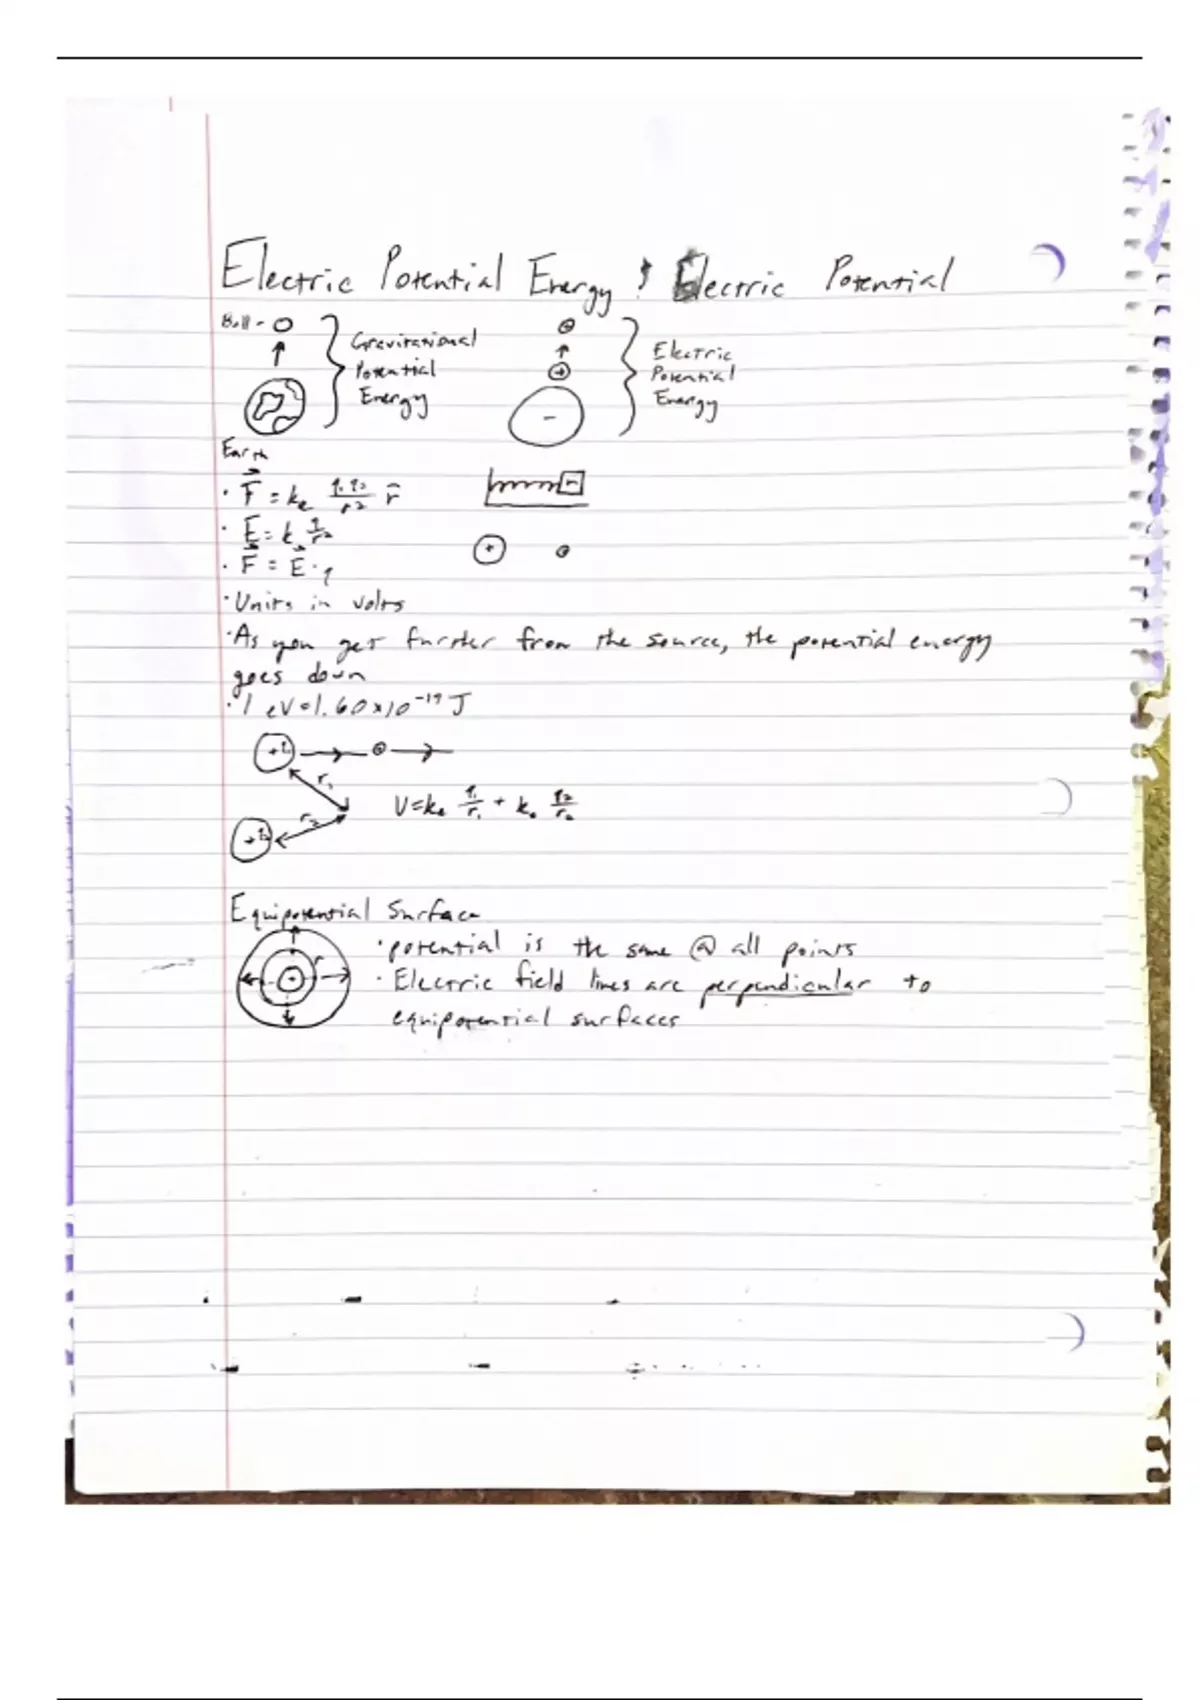 Electric Potential Energy & Electric Potential
Ball - 
Gravitational
Potential
Energy
Earth
+
+
-
Electric
Potential
Energy
· F = ke q1q2/r2 r̂
· E = k q/r2
· F = E · q
+
· Units in volts
· As you get further from the source, the potential energy
goes down
· 1 eV = 1.60 x 10^-19 J
+q1
r1
V = ke q1/r1 + ke q2/r2
r2
+q2
Equipotential Surface
r
· potential is the same @ all points
· Electric field lines are perpendicular to
equipotential surfaces